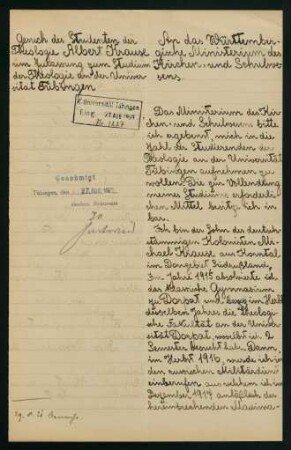 Gesuch des Studenten der
Theologie Albert Krause
um Zulassung zum Studium
der Theologie an der Univer-
sität Tübingen
An das Württember-
gische Ministerium des
Kirchen- und Schulwe-
sens.
Das Ministerium des Kir-
chen- und Schulwesens bitte
ich ergebenst mich in die
Zahl der Studierenden der
Theologie an der Universität
Tübingen aufnehmen zu
wollen. Die zur Vollendung
meines Studiums erforderli-
chen Mittel besitze ich in
bar.
Ich bin der Sohn des deutsch-
stämmigen Kolonisten Mi-
chael Krause aus
im Dongebiet Südrußland.
Im Jahre 1915 absolvierte ich
das klassische Gymnasium
zu Dorpat und bezog im Halb
desselben Jahres die theologische
Fakultät an der Univer-
sität Dorpat woselbst ich 2
Semester besucht habe. Dann
im Herbst 1916 wurde ich in
den russischen Militärdienst
einberufen aus welchem ich im
Dezember 1917 anläßlich der
Genehmigt
Tübingen, den